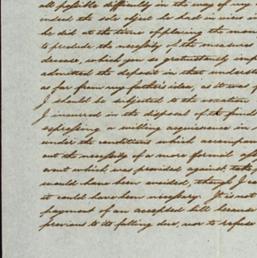 all possible difficulty in the way of my
indeed the sole object he had in view in
he did at the time of placing the mon
to preclude the necessity of the measures
decease, which you so gratuitously imp
admitted the deposit in that underst
as far from my father's idea, as it was f
I should be subjected to the vexation
I incurred in the disposal of the funds
expressing a willing acquiescence in
under the conditions which accompan
out the necessity of a more formal app
event which was provided against, take p
would have been avoided, though I
it could have been necessary. It is not
payment of an accepted bill because
previous to its falling due, nor to refuse